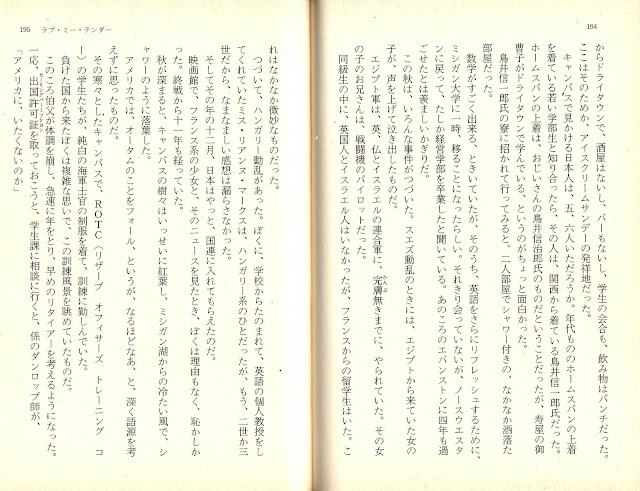 194
からドライタウンで、酒屋はないし、バーもないし、学生の会合も、飲み物はパンチだった。
ここはそのためか、アイスクリームサンデーの発祥地だった。
キャンパスで見かける日本人は、五、六人いただろうか。年代もののホームスパンの上着
を着ている若い学部生と知り合ったら、その人は、関西から着ている鳥井信一郎氏だった。
ホームスパンの上着は、おじいさんの鳥井信治郎氏のものだということだったが、寿屋の御
曹子がドライタウンで学んでいる、というのがちょっと面白かった。
鳥井信一郎氏の寮に招かれて行ってみると、二人部屋でシャワー付きの、なかなか洒落た
部屋だった。
数学がすごく出来る、ときいていたが、そのうち、英語をさらにリフレッシュするために、
ミシガン大学に一時、移ることになったらしい。それきり会っていないが、ノースウエスタ
ンに戻って、たしか経営学部を卒業したと聞いている。あのころのエバンストンに四年も過
ごせたとは羨ましいかぎりだ。
この秋は、いろんな事件がつづいた。スエズ動乱のときには、エジプトから来ていた女の
子が、声を上げて泣き出したものだ。
エジプト軍は、英、仏とイスラエルの連合軍に、完膚無きまでに、やられていた。その女
の子のお兄さんは、戦闘機のパイロットだった。
同級生の中に、英国人とイスラエル人はいなかったが、フランスからの留学生はいた。こ
195 ラブ・ミー・テンダー
れはなかなか微妙なものだった。
つづいて、ハンガリー動乱があった。ぼくに、学校からたのまれて、英語の個人教授をし
てくれていたミス・リアンヌ・マークスは、ハンガリー系のひとだったが、もう、二世か三
世だから、なまなましい感想は漏らさなかった。
そしてその年の十二月、日本はやっと、国連に入れてもらえたのだ。
映画館で、フランス系の少女と、そのニュースを見たとき、ぼくは理由もなく、恥かしか
った。終戦から十一年も経っていた。
秋が深まると、キャンパスの樹々はいっせいに紅葉し、ミシガン湖からの冷たい風で、シ
ャワーのように落葉した。
アメリカでは、オータムのことをフォール、というが、なるほどなあ、と、深く語源を考
えずに思ったものだ。
その寒々としたキャンパスで、ＲＯＴＣ（リザーブ オフィサーズ トレーニング コ
ー）の学生たちが、純白の海軍士官の制服を着て、訓練に勤しんでいた。
負けた国から来たぼくは複雑な思いで、この訓練風景を眺めていたものだ。
このころ伯父が体調を崩し、急速に年をとり、早めのリタイアーを考えるようになった。
一応、出国許可証を取っておこうと、学生課に相談に行くと、係のダンロップ師が、
「アメリカに、いたくないのか」